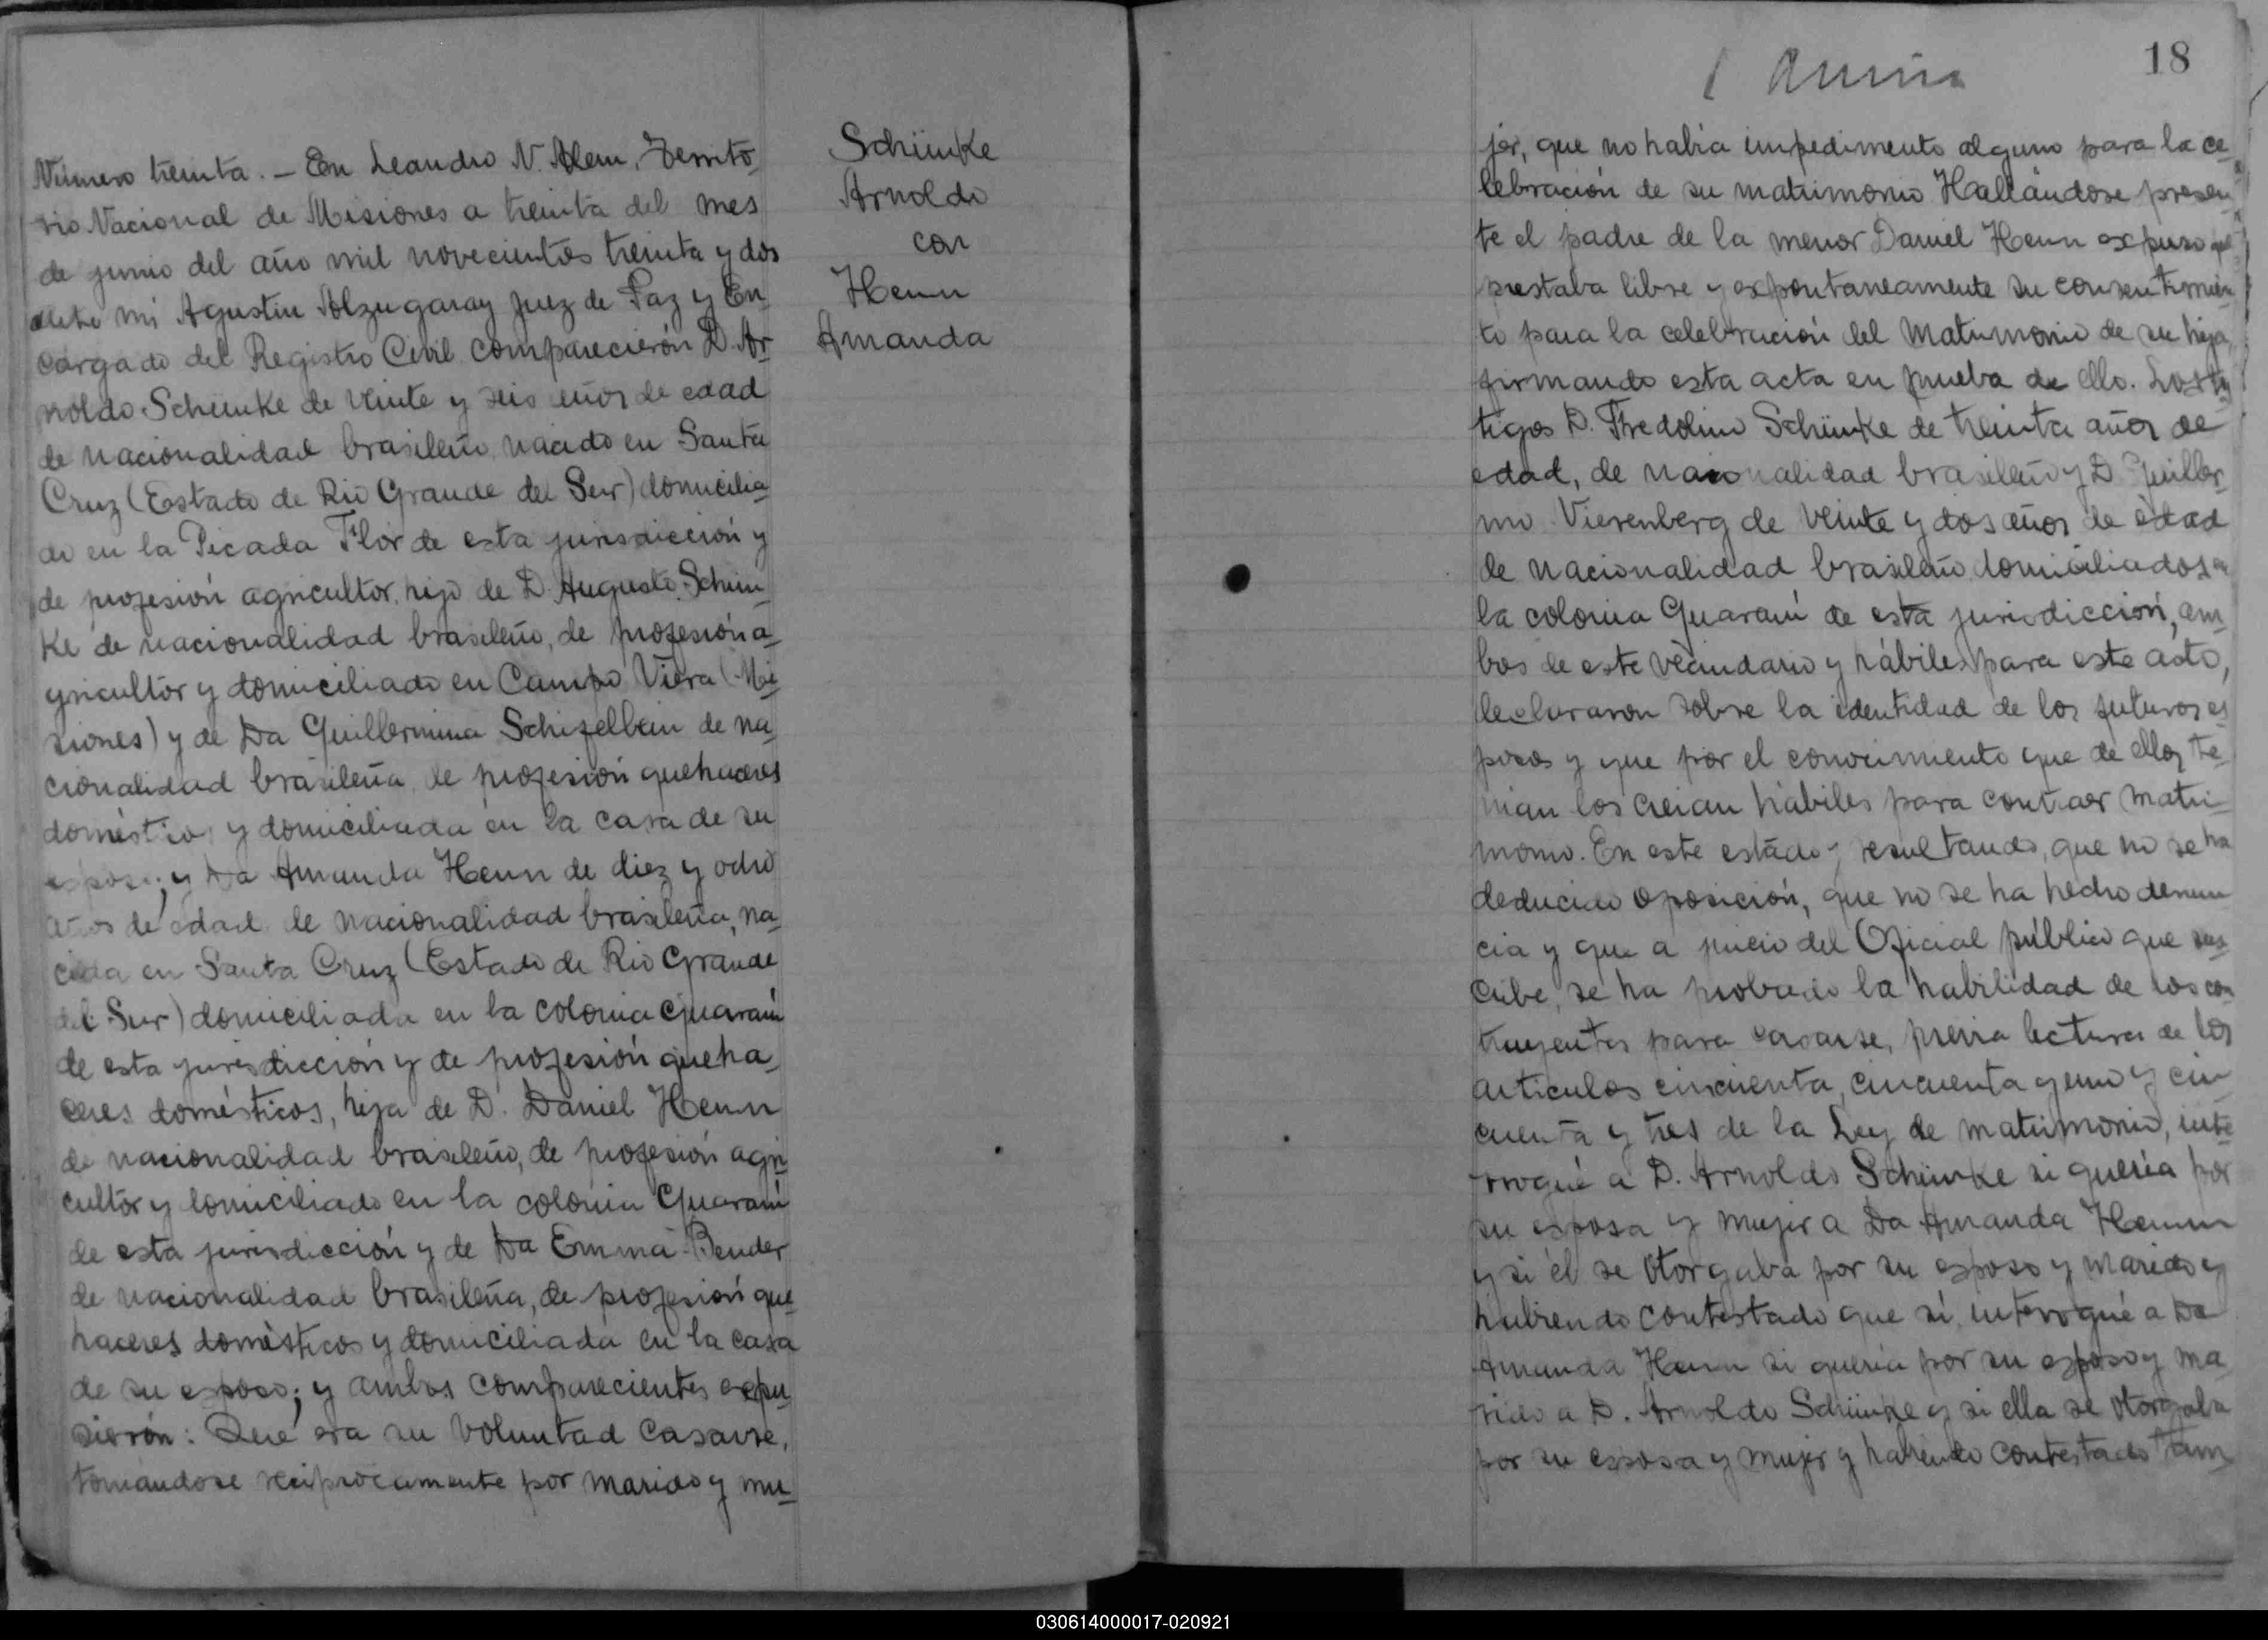 Número treinta. — En Leandro N. Alem, Territo-
rio Nacional de Misiones a treinta del mes
de junio del año mil novecientos treinta y dos
ante mi Agustin Olzugaray Juez de Paz y En-
cargado del Registro Civil comparecierón D. Ar-
noldo Schünke de veinte y seis años de edad
de nacionalidad brasileño, nacido en Santa
Cruz (Estado de Rio Grande del Sur) domicilia-
do en la Picada Flor de esta jurisdicción y
de profesión agricultor, hijo de D. Augusto Schün-
ke de nacionalidad brasileño, de profesión a-
gricultor y domiciliado en Campo Viera (Mi-
siones) y de Da Guillermina Schifelbein de na-
cionalidad brasileña, de profesión quehaceres
domésticos y domiciliada en la casa de su
esposo; y Da Amanda Henn de diez y ocho
años de edad, de nacionalidad brasileña, na-
cida en Santa Cruz (Estado de Rio Grande
del Sur) domiciliada en la colonia Guaraní
de esta jurisdicción y de profesión queha-
ceres domésticos, hija de D. Daniel Henn
de nacionalidad brasileño, de profesión agri-
cultor y domiciliado en la colonia Guaraní
de esta jurisdicción y de Da Emma Bender
de nacionalidad brasileña, de profesión que-
haceres domésticos y domiciliada en la casa
de su esposo; y ambos comparecientes expu-
sierón: Que era su voluntad casarse,
tomándose reciprocamente por marido y mu-
Schünke
Arnoldo
con
Henn
Amanda
18
jer, que no habia impedimento alguno para la ce-
lebración de su matrimonio Hallándose presen-
te el padre de la menor Daniel Henn expuso que
prestaba libre y expontaneamente su consentimien-
to para la celebración del matrimonio de su hija,
firmando esta acta en prueba de ello. Los tes-
tigos D. Fredolino Schünke de treinta años de
edad, de nacionalidad brasileño y D. Guiller-
mo Vierenberg de veinte y dos años de edad
de nacionalidad brasileño, domiciliados en
la colonia Guaraní de esta jurisdicción, am-
bos de este vecindario y hábiles para este acto,
declararon sobre la identidad de los futuros es-
posos y que por el conocimiento que de ellos te-
nian los creian hábiles para contraer matri-
monio. En este estado y resultando, que no se ha
deducido oposición, que no se ha hecho denun-
cia y que a juicio del Oficial público que sus-
cribe, se ha probado la habilidad de los con-
trayentes para casarse, previa lectura de los
articulos cincuenta, cincuenta y uno y cin-
cuenta y tres de la Ley de matrimonio, inte-
rrogué a D. Arnoldo Schünke si queria por
su esposa y mujer a Da Amanda Henn
y si él se otorgaba por su esposo y marido y
habiendo contestado que sí, interrogué a Da
Amanda Henn si queria por su esposo y ma-
rido a D. Arnoldo Schünke y si ella se otorgaba
por su esposa y mujer y habiendo contestado tam-
030614000017-020921